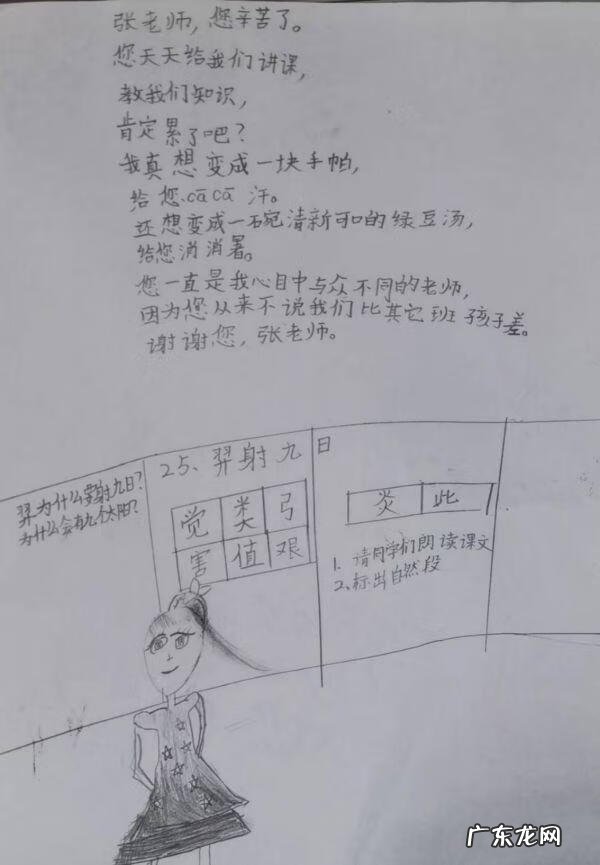 张老师，您辛苦了。
您天天给我们讲课，
教我们知识，
肯定累了吧？
我真想变成一块手帕，
给您cā cā汗。
还想变成一碗清新可口的绿豆汤，
给您消消暑。
您一直是我心目中与众不同的老师，
因为您从来不说我们比其它班孩子差。
谢谢您，张老师。
羿为什么要射九日？
为什么会有九个太阳？
25、羿射九日
觉类弓
害值艰
炎此
1. 请同学们朗读课文
2、标出自然段
广东龙网